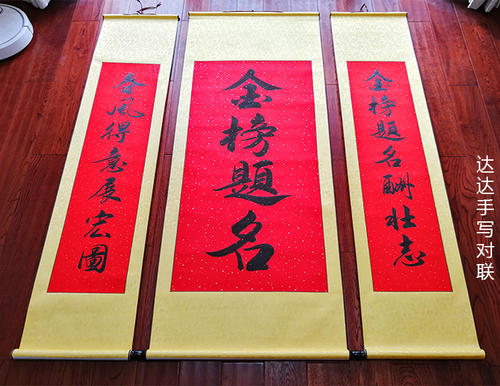 金榜题名酬壮志
金榜題名
春风得意展宏圖
达达手写对联